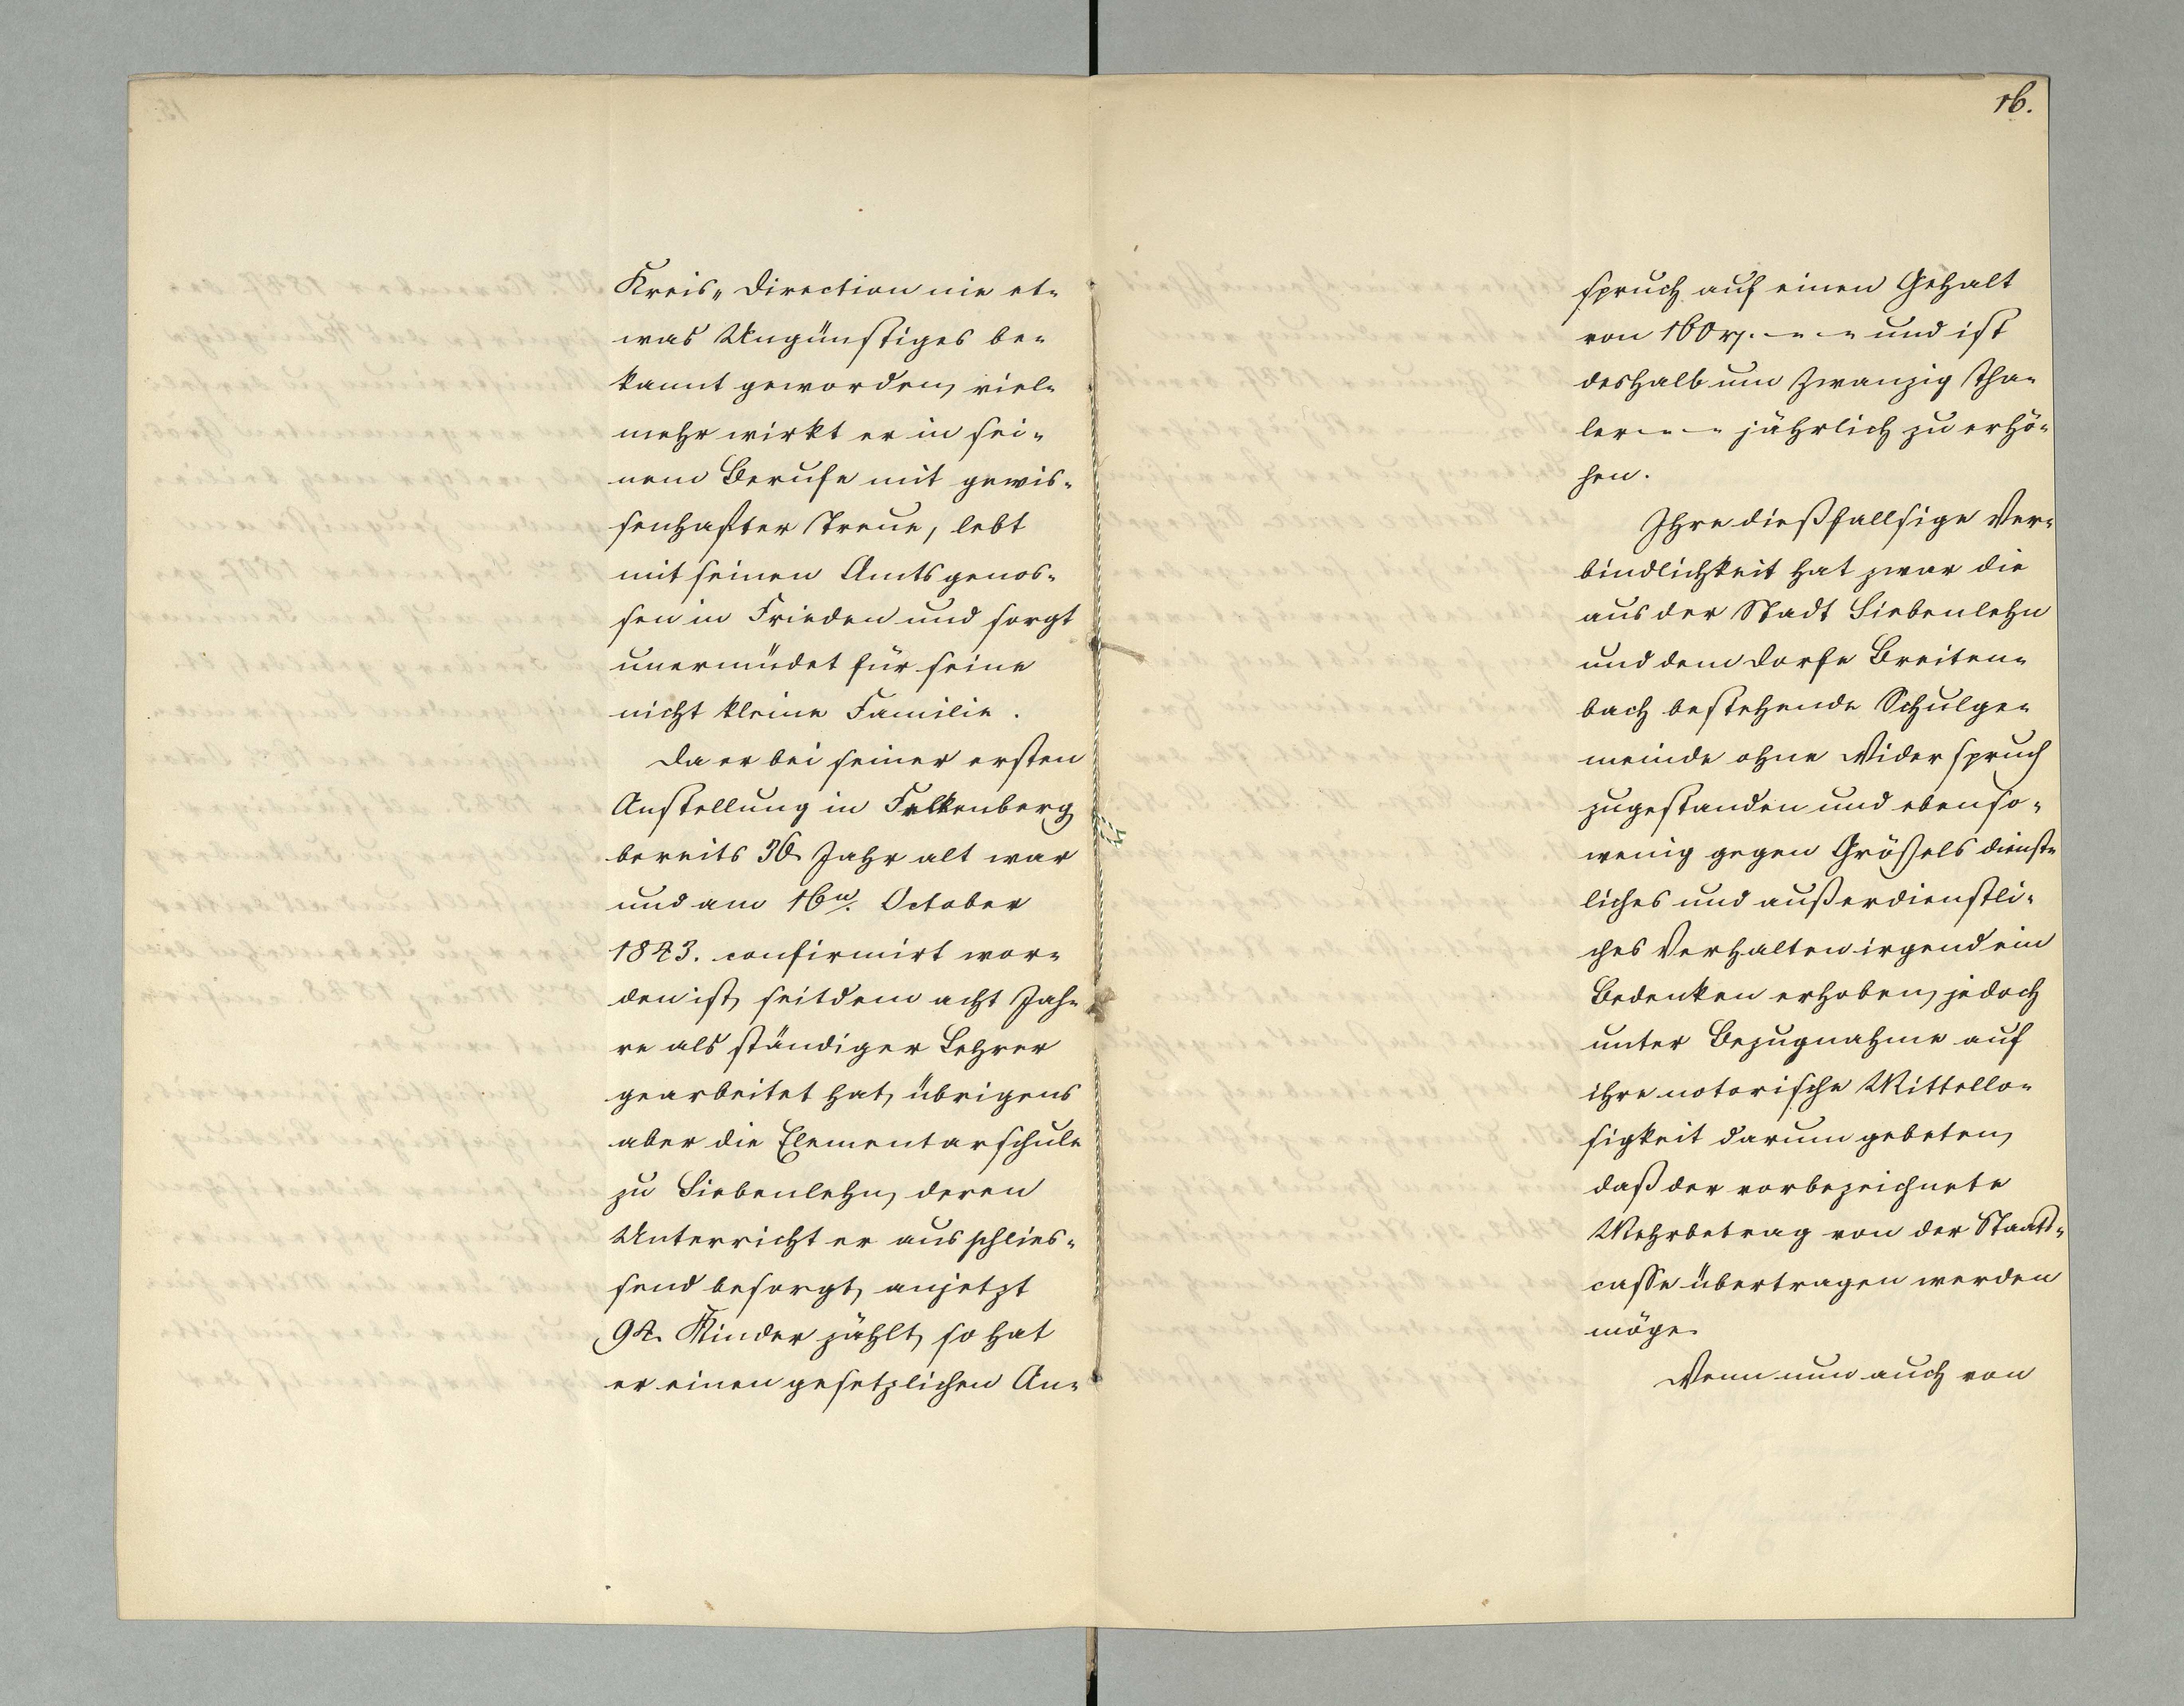 Kreis„Direction nie et-
was Ungünstiges be-
kannt geworden, viel-
mehr wirkt er in sei-
nem Berufe mit gewis-
senhafter Treue, lebt
mit seinen Amtsgenos-
sen in Frieden und sorgt
unermüdet für seine
nicht kleine Familie.
Da er bei seiner ersten
Anstellung in Falkenberg
bereits 30 Jahr alt war
und am 16n. October
1843. confirmirt wor-
den ist, seitdem acht Jah-
re als ständiger Lehrer
gearbeitet hat, übrigens
aber die Elementarschule
zu Siebenlehn, deren
Unterricht er ausschlies-
send besorgt, anjetzt
94. Kinder zählt, so hat
er einen gesetzlichen An-
16.
spruch auf einen Gehalt
von 160 rp. - - - und ist
deshalb um Zwanzig Tha-
ler - - - jährlich zu erhö-
hen.
Ihre dießfallsige Ver-
bindlichkeit hat zwar die
aus der Stadt Siebenlehn
und dem Dorfe Breiten-
bach bestehende Schulge-
meinde ohne Widerspruch
zugestanden und ebenso-
wenig gegen Größels dienst-
liches und außerdienstli-
ches Verhalten irgend ein
Bedenken erhoben, jedoch
unter Bezugnahme auf
ihre notorische Mittello-
sigkeit darum gebeten,
daß der vorbezeichnete
Mehrbetrag von der Staats-
casse übertragen werden
möge.
Wenn nun auch von